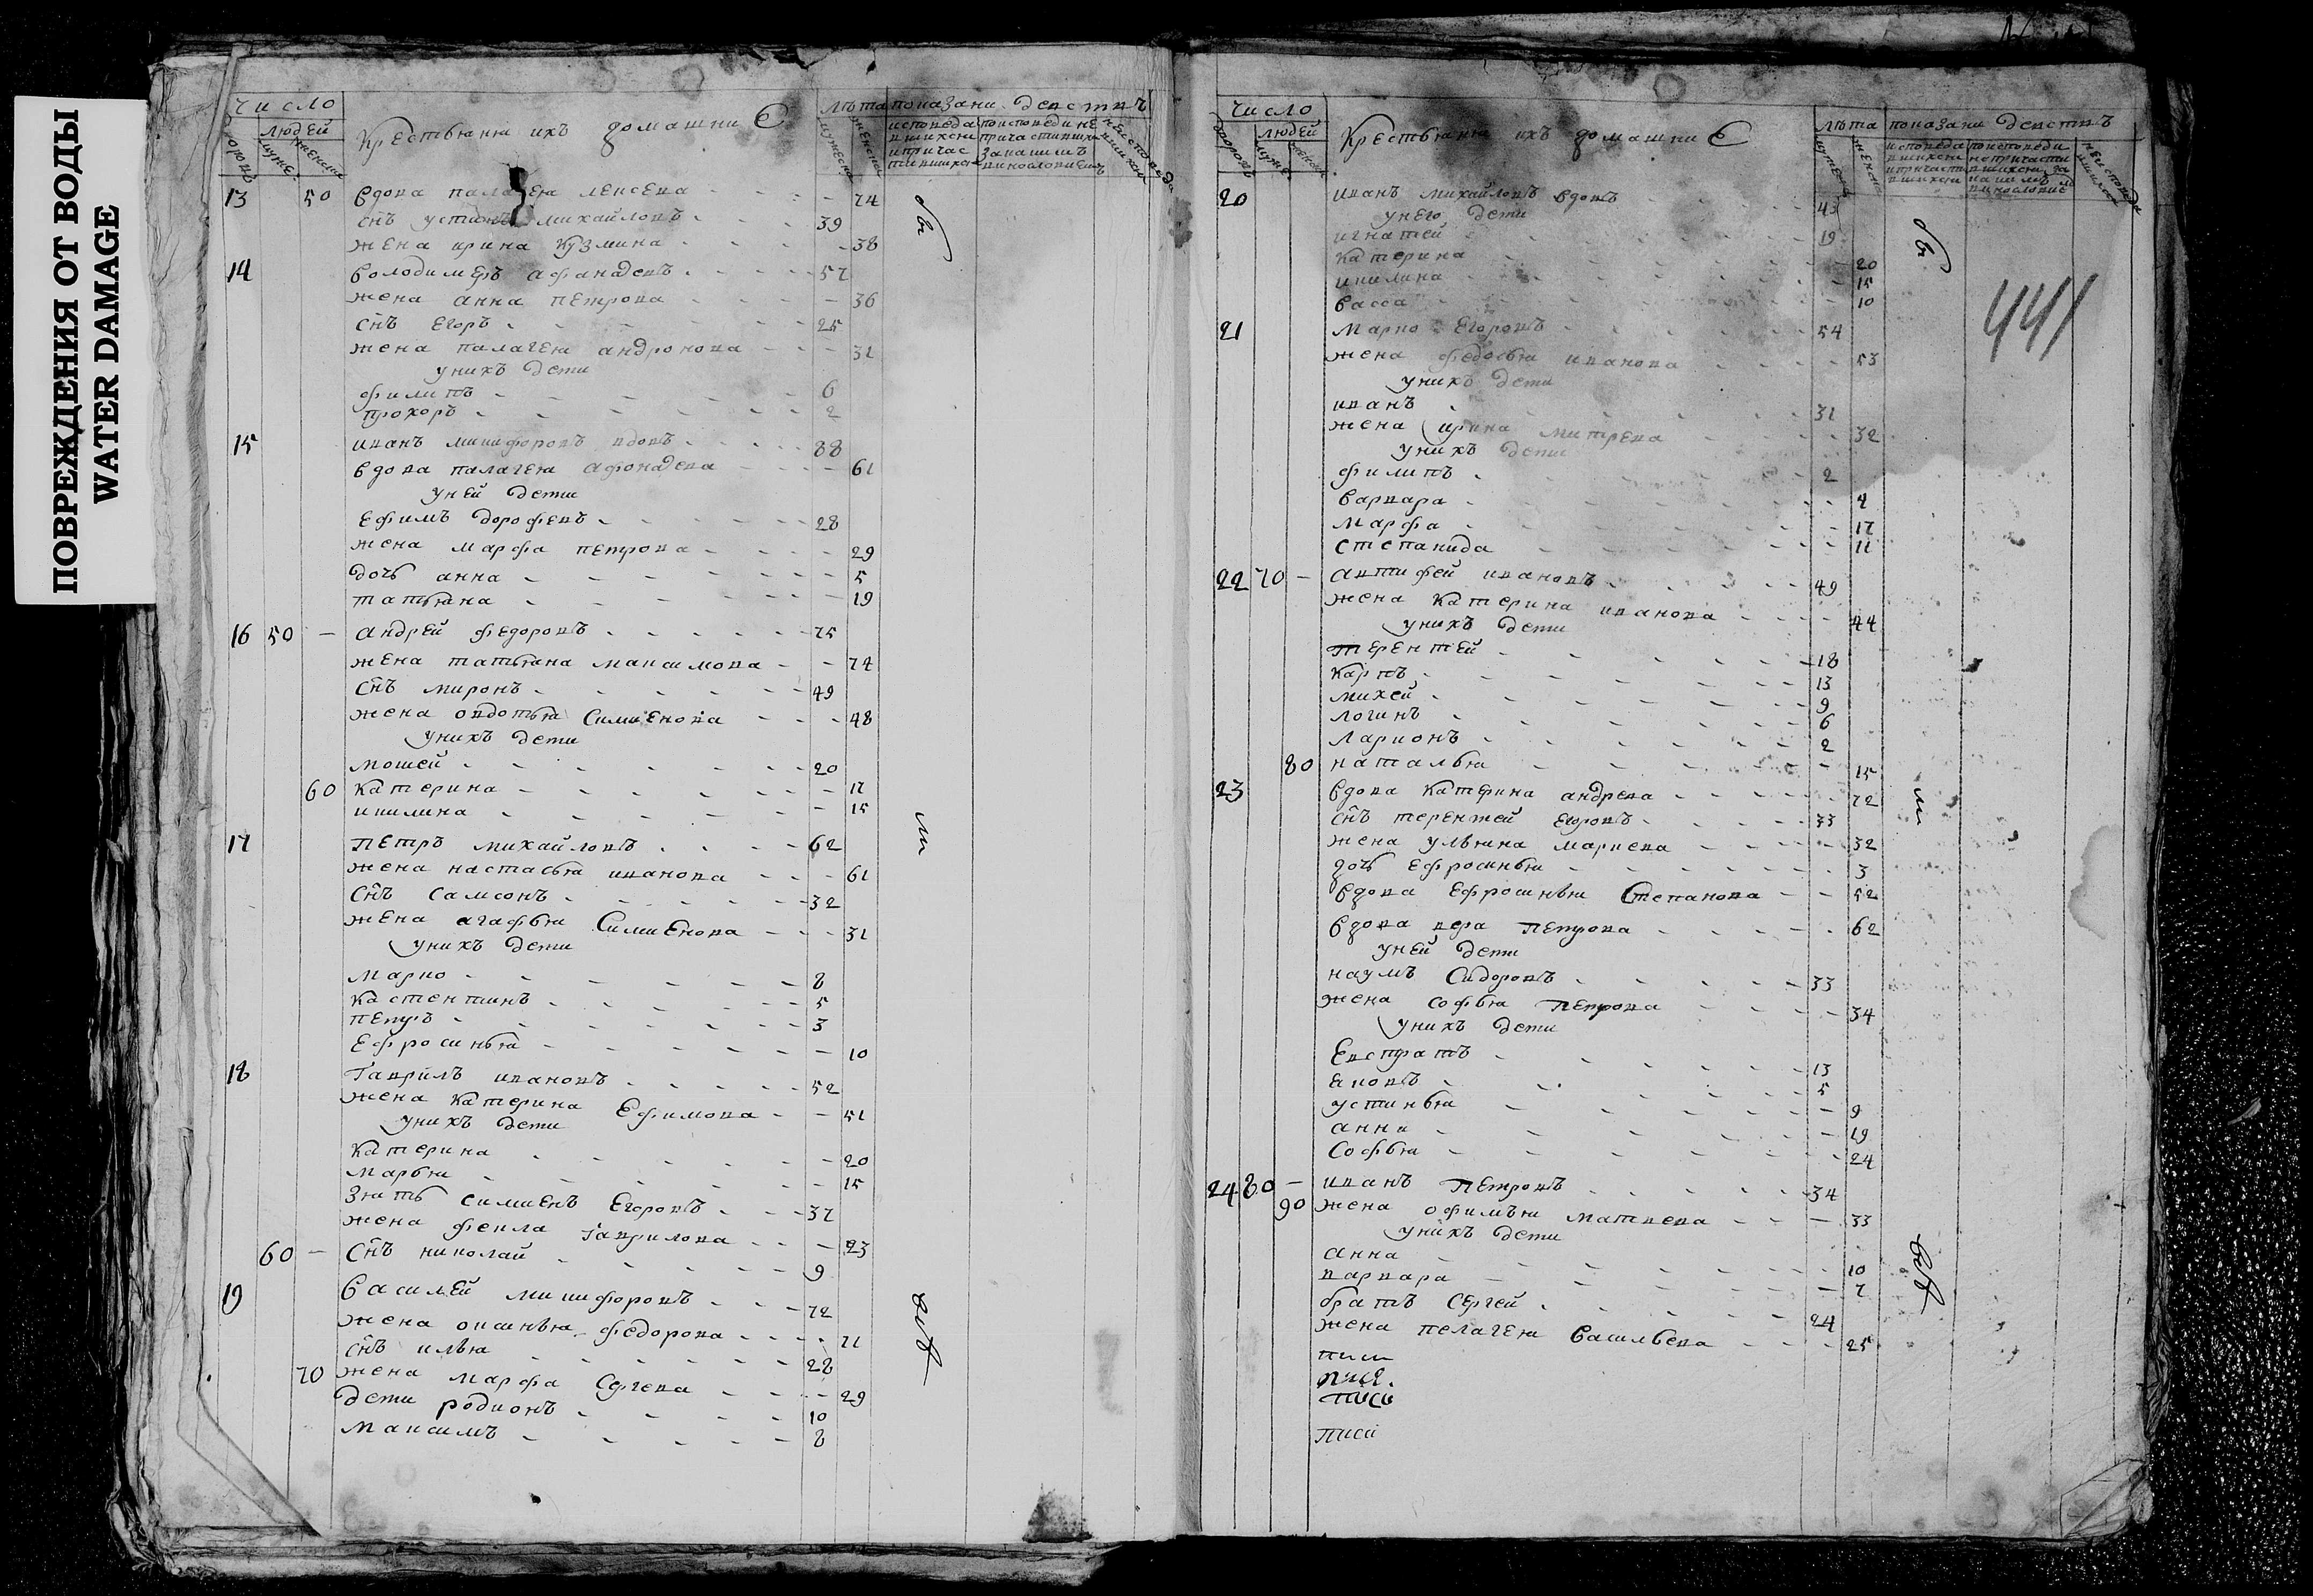 ПОВРЕЖДЕНИЯ ОТ ВОДЫ
WATER DAMAGE
Число
людей
Крестьяня ихъ домашни Е
лѣта показани действъ
13 50 вдова палагея 74
снъ устинъ михайловъ 39
жена ирина кузмина 38
14 володимеръ афанасевъ 57
жена анна петрова 36
снъ егоръ 25
жена палагея андронова 31
у нихъ дети
филипъ 6
прохоръ 2
15 иванъ никифоровъ вдовъ 88
вдова палагея афонасева 61
у ней дети
ефимъ дорофеевъ 28
жена марфа петрова 29
дочь анна 5
татьяна 19
16 50 андрей федоровъ 75
жена татьяна максимова 74
снъ миронъ 49
жена овдотья симиенова 48
у нихъ дети
мосей 20
60 катерина 17
акилина 15
17 петръ михайловъ 62
жена настасья иванова 61
снъ самсонъ 32
жена агафья симиенова 31
у нихъ дети
марко 8
кастентинъ 5
петръ 3
ефросинья 10
18 гаврилъ ивановъ 52
жена катерина ефимова 51
у нихъ дети
катерина 20
марья 15
зять симиенъ егоровъ 37
жена фекла гаврилова 23
60 снъ николай 9
19 василей никифоровъ 72
жена оксинья федорова 71
снъ илья 28
70 жена марфа сергева 29
дети родионъ 10
максимъ 8
Число
людей
Крестьяня ихъ домашни Е
лѣта показани действъ
441
20 иванъ михайловъ вдовъ 43
у него дети
игнатей 19
катерина 20
акилина 15
васса 10
21 марко егоровъ 54
жена федосья иванова 53
у нихъ дети
иванъ 31
жена ирина митрева 32
у нихъ дети
филипъ 2
варвара 4
марфа 17
степанида 11
22 70 антифей ивановъ 49
жена катерина иванова 44
у нихъ дети
терентей 18
карпъ 13
михей 9
логинъ 6
ларионъ 2
80 наталья 15
23 вдова катерина андрева 72
снъ терентей егоровъ 33
жена ульяна маркева 32
дочь ефросинья 3
вдова ефросинья степанова 52
вдова вера петрова 62
у ней дети
наумъ сидоровъ 33
жена софья петрова 34
у нихъ дети
евстратъ 13
яковъ 5
устинья 9
анна 19
софья 24
24 80 иванъ петровъ 34
90 жена офимья матвева 33
у нихъ дети
анна 10
варвара 7
братъ сергей 24
жена пелагея васильева 25